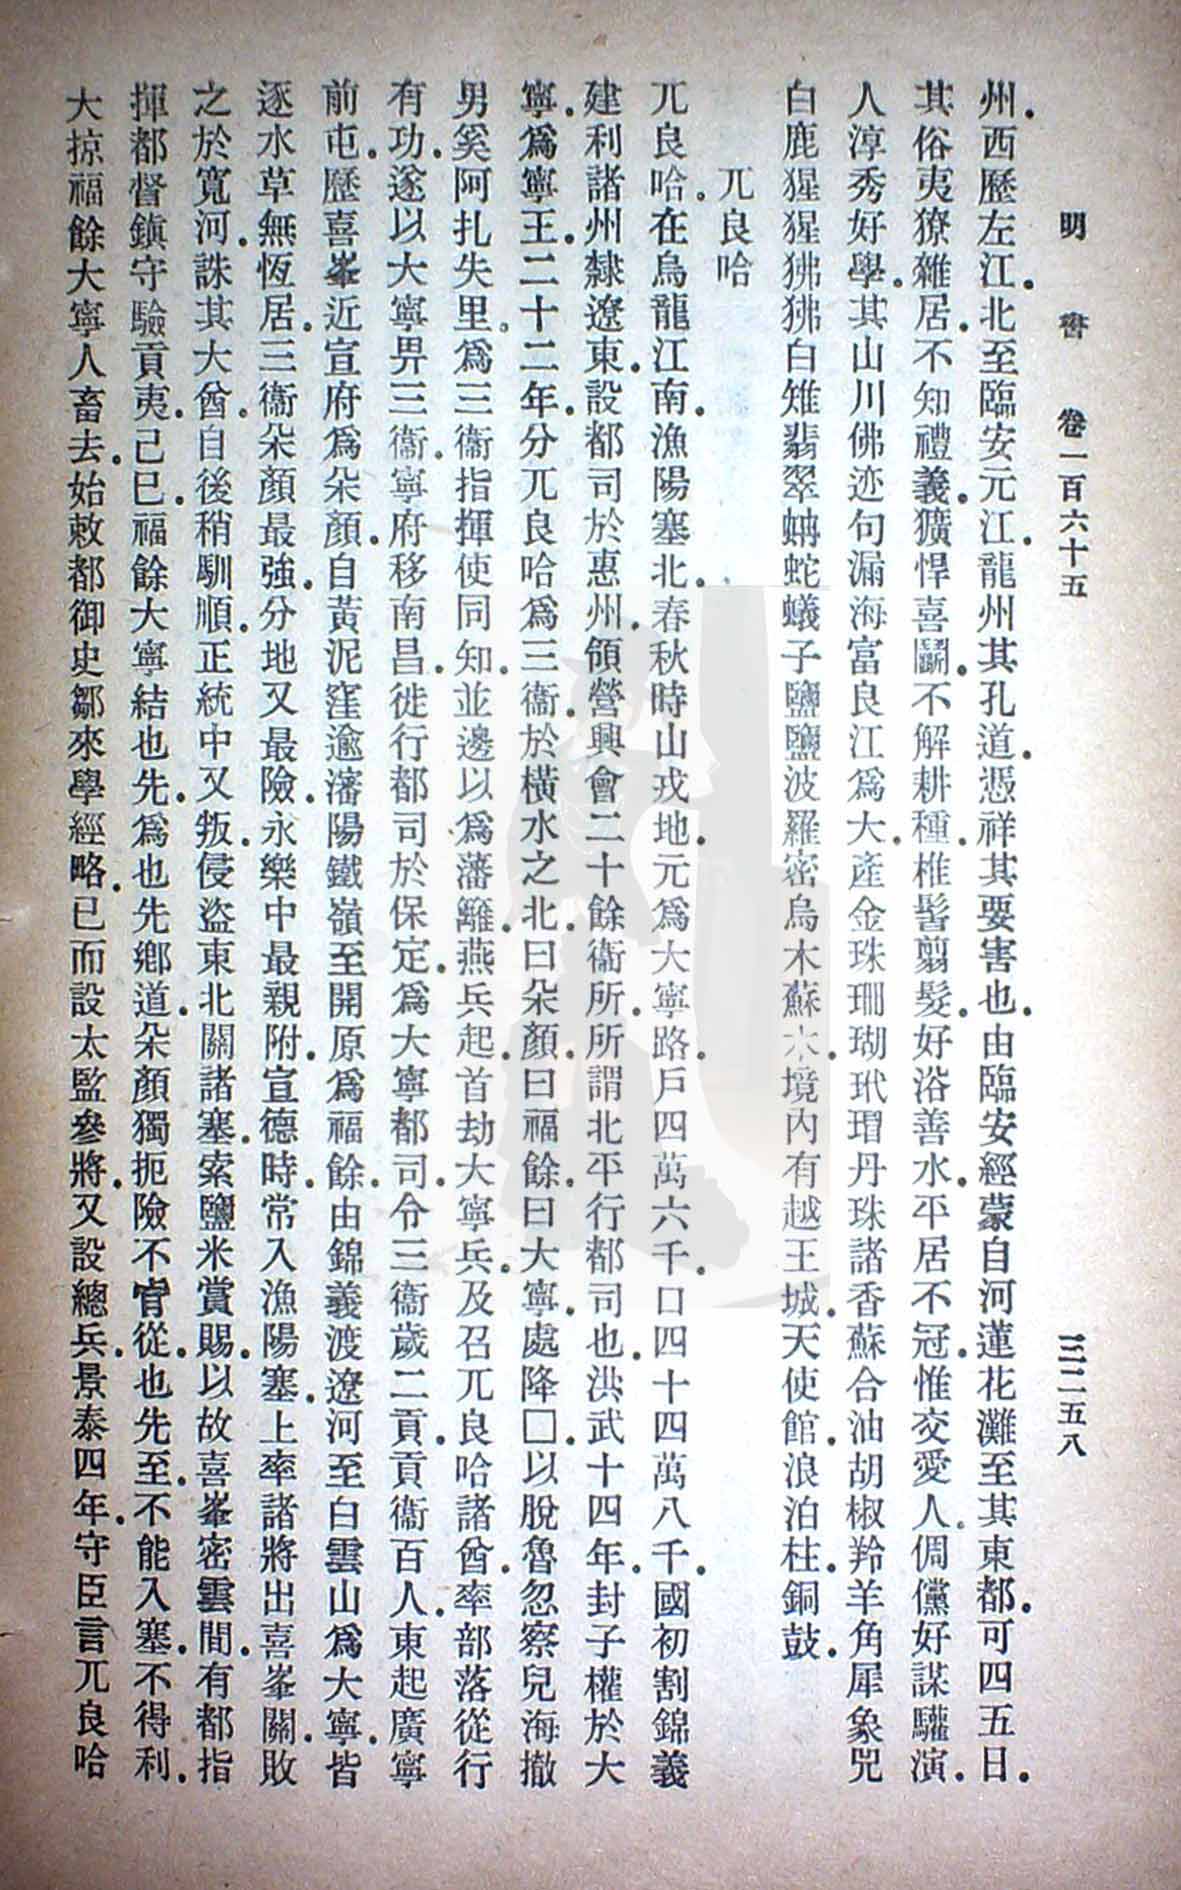 明書 卷一百六十五 三二五八
州．西歷左江．北至臨安元江．龍州其孔道．憑祥其要害也．由臨安經蒙自河蓮花灘至其東都．可四五日．
其俗夷獠雜居．不知禮義．獷悍喜鬭．不解耕種．椎髻剪髮．好浴善水．平居不冠．惟交愛人．倜儻好謀．驩演．
人淳秀好學．其山川佛迹句漏海富良江爲大．產金珠珊瑚玳瑁丹珠諸香蘇合油胡椒羚羊角犀象兕
白鹿猩猩狒狒白雉翡翠蚺蛇蟻子鹽鹽波羅密烏木蘇木．境內有越王城．天使館．浪泊柱．銅鼓．
兀良哈
兀良哈．在烏龍江南．漁陽塞北．春秋時山戎地．元爲大寧路．戶四萬六千．口四十四萬八千．國初割錦義
建利諸州隸遼東．設都司於惠州．領營興會二十餘衞所．所謂北平行都司也．洪武十四年．封子權於大
寧．爲寧王．二十二年．分兀良哈爲三衞．於橫水之北．曰朵顏．曰福餘．曰大寧．處降□．以脫魯忽察兒海撤
男奚阿扎失里．爲三衞指揮使同知．並邊以爲藩籬．燕兵起．首劫大寧兵．及召兀良哈諸酋．率部落從行
有功．遂以大寧畀三衞．寧府移南昌．徙行都司於保定．爲大寧都司．令三衞歲二貢．貢衞百人．東起廣寧
前屯．歷喜峯近宣府爲朵顏．自黃泥窪逾瀋陽鐵嶺至開原爲福餘．由錦義渡遼河至白雲山爲大寧．皆
逐水草無恆居．三衞朵顏最強．分地又最險．永樂中最親附．宣德時．常入漁陽塞．上率諸將出喜峯關．敗
之於寬河．誅其大酋．自後稍馴順．正統中又叛．侵盜東北關諸塞．索鹽米賞賜．以故喜峯密雲間．有都指
揮都督鎭守驗貢夷．己巳．福餘大寧結也先．爲也先鄕道．朵顏獨扼險不肯從．也先至．不能入塞．不得利．
大掠福餘大寧人畜去．始敕都御史鄒來學經略．已而設太監參將．又設總兵．景泰四年．守臣言兀良哈